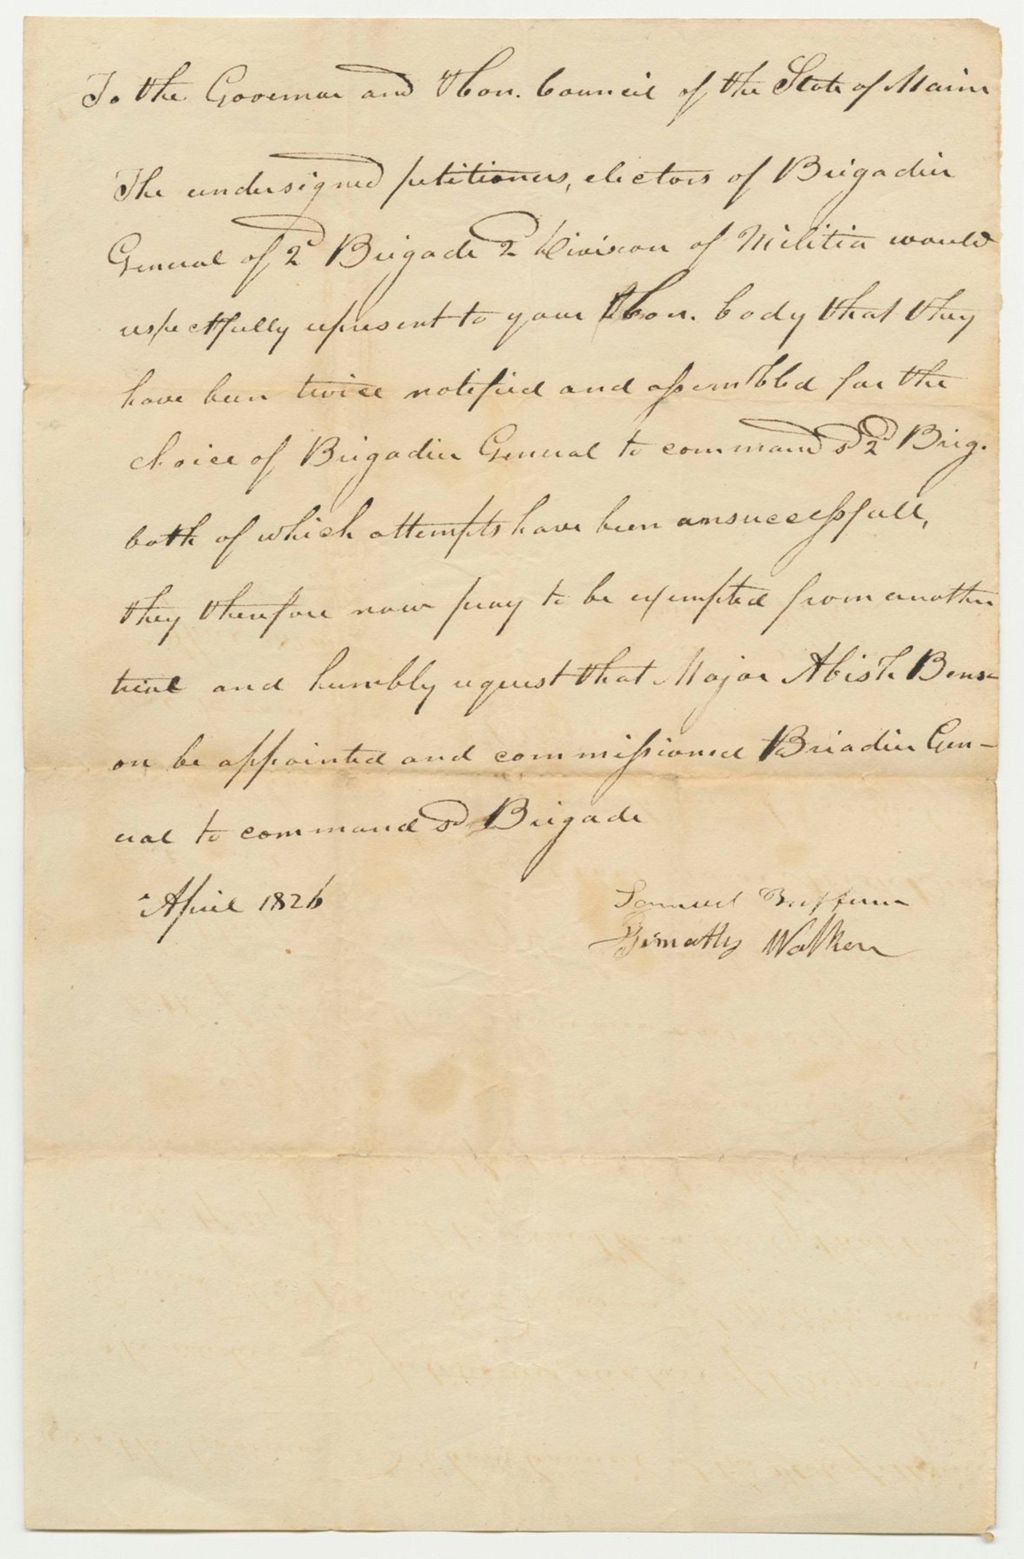 To the Governor and Hon. Council of the State of Maine
The undersigned petitioners, electors of Brigadier
General of 2d Brigade 2 Division of Militia would
respectfully represent to your Hon. body that they
have been twice notified and assembled for the
choice of Brigadier General to command sd 2d Brig.
both of which attempts have been unsuccessfull,
they therefore now pray to be exempted from another
trial and humbly request that Major Abish Bens-
on be appointed and commissioned Briadier Gen-
eral to command sd Brigade
April 1826
Samuel Buffum
Timothy Walker